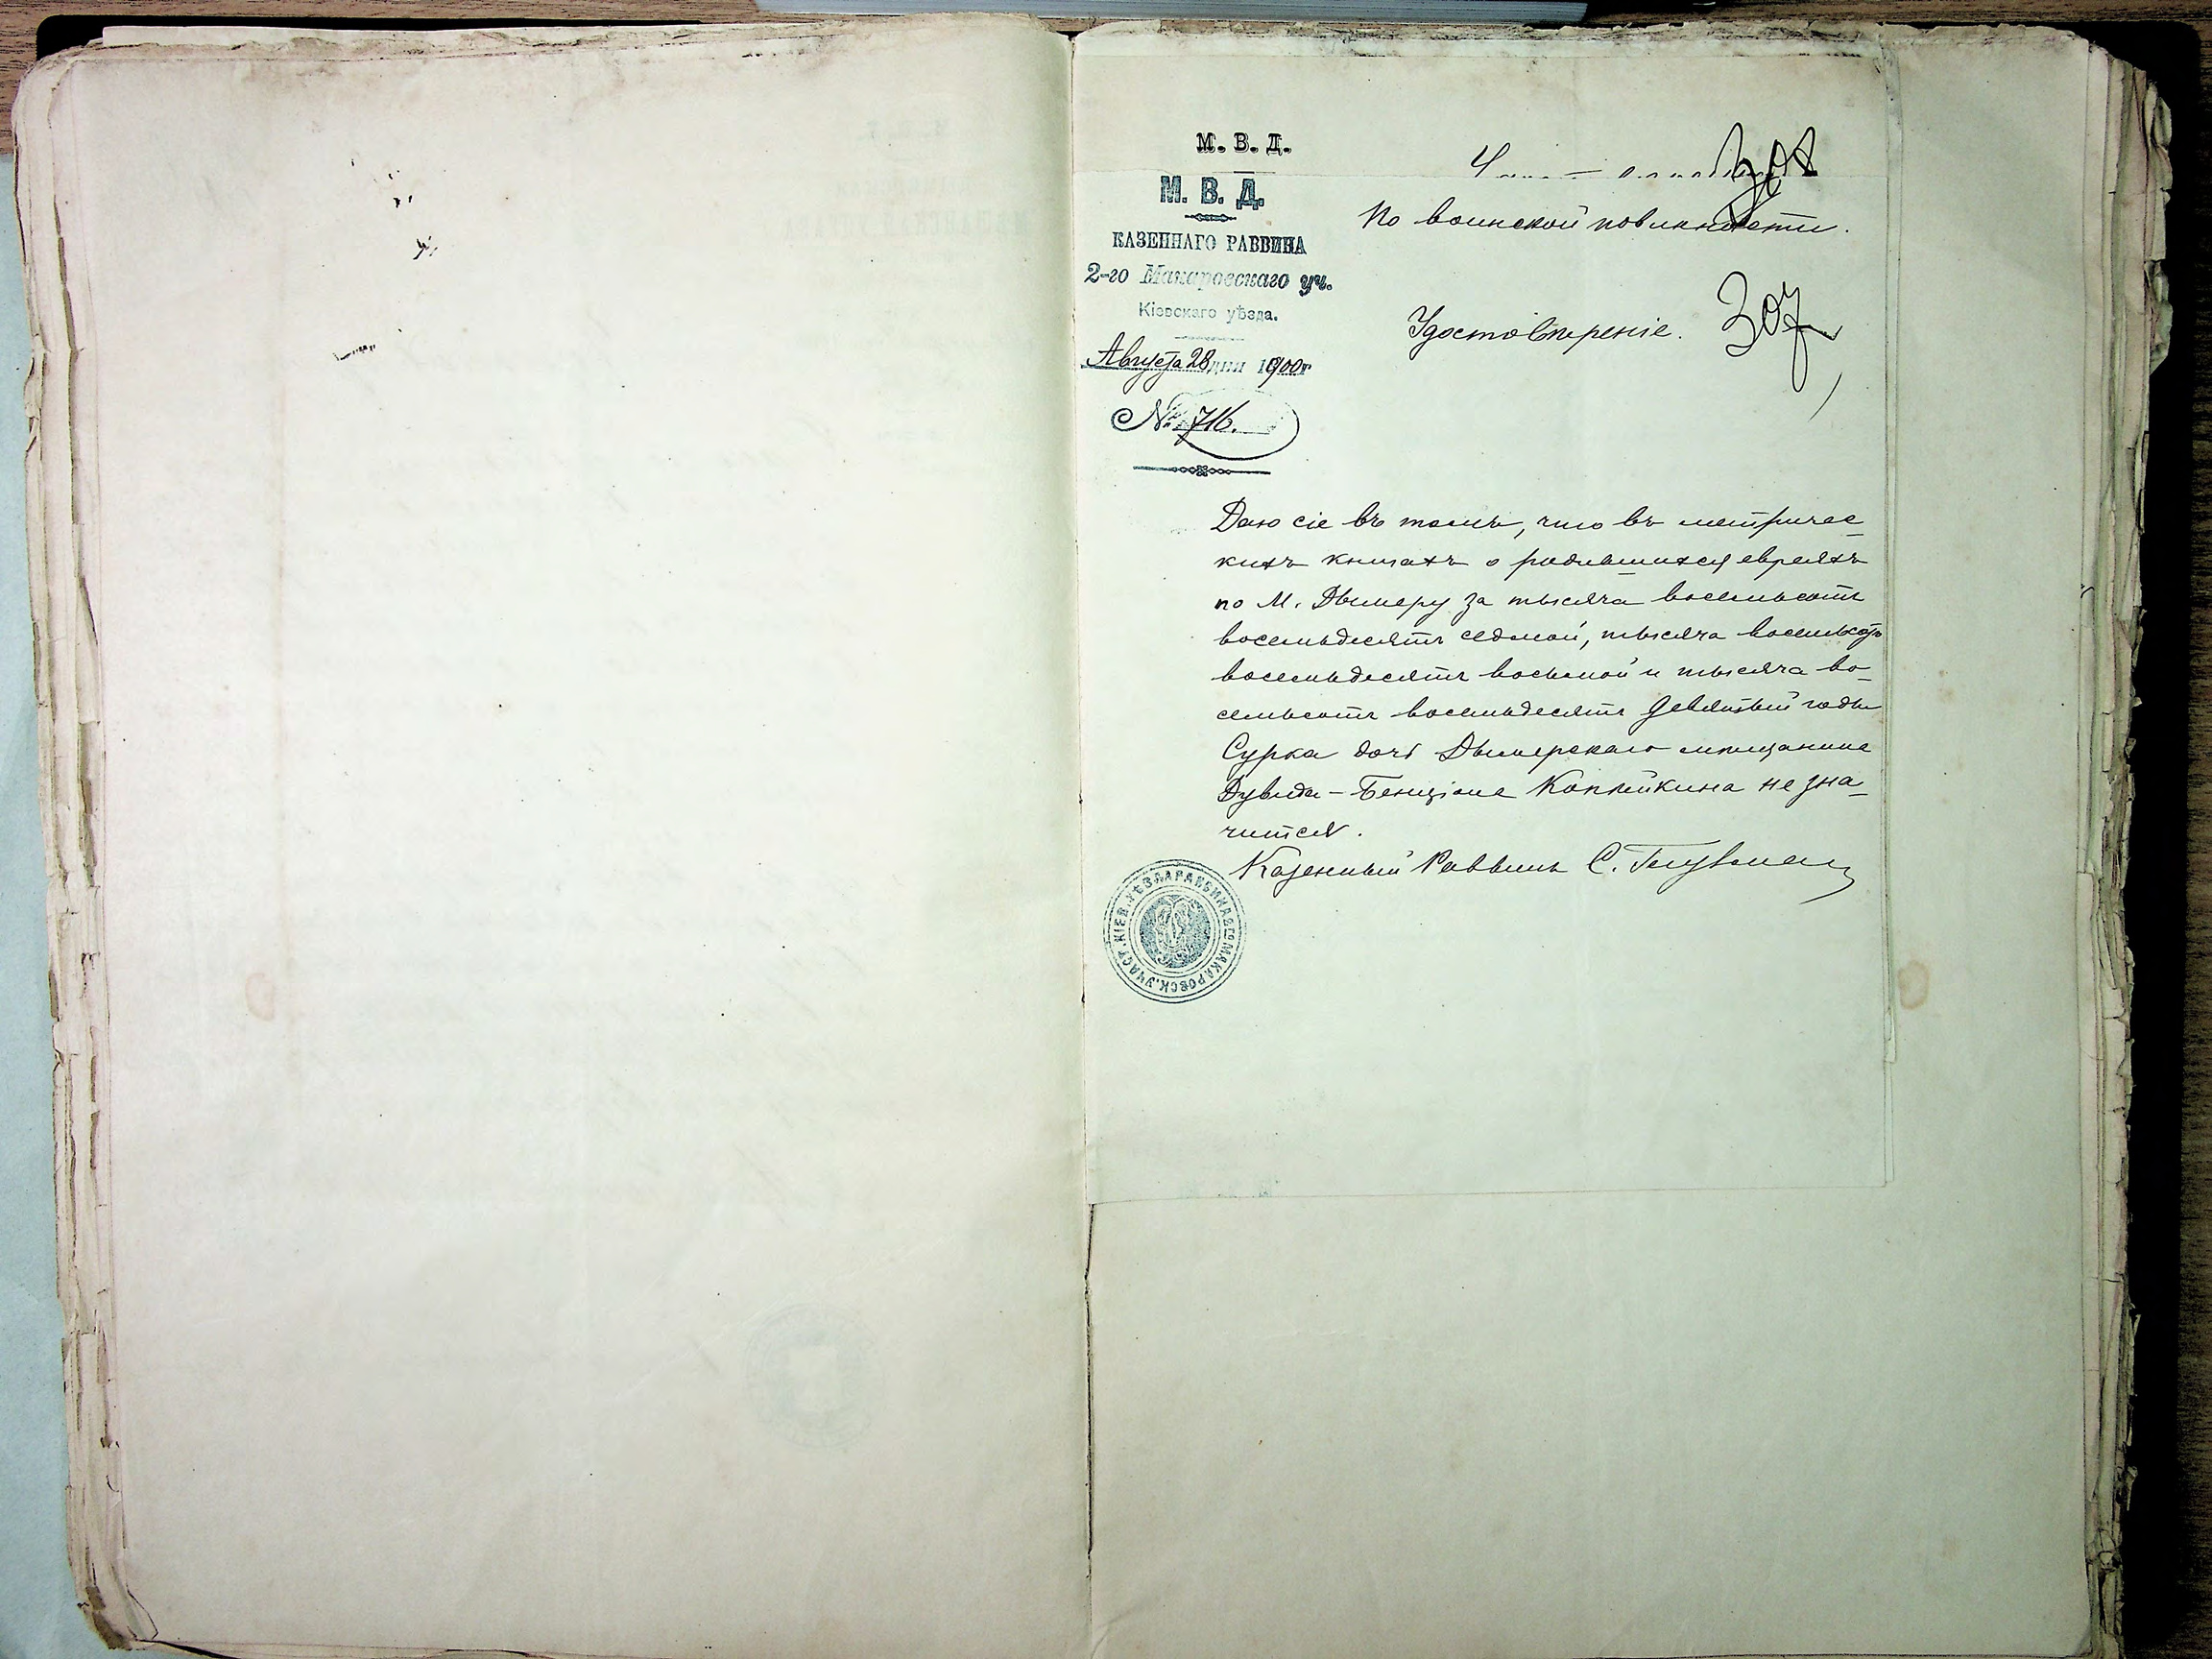 М. В. Д.
М. В. Д.
КАЗЕННАГО РАВВИНА
2-го Макаровскаго уч.
Кіевскаго уѣзда.
Августа 28 дня 1900 г
№ 716.
По воинской повинности.
Удостовѣреніе.
307
Даю сіе въ томъ, что въ метричес_
кихъ книгахъ о родившихся евреяхъ
по М. Дымеру за тысяча восемьсотъ
восемьдесятъ седьмой, тысяча восемьсотъ
восемьдесятъ восьмой и тысяча во_
семьсотъ восемьдесятъ девятый годы
Сурка дочь Дымерскаго мѣщанина
Дувида-Бенціона Копѣйкина не зна_
чится.
Казенный Раввинъ С.
КІЕВ. УѢЗДА РАВВИНА 2ГО МАКАРОВСК. УЧАСТ.